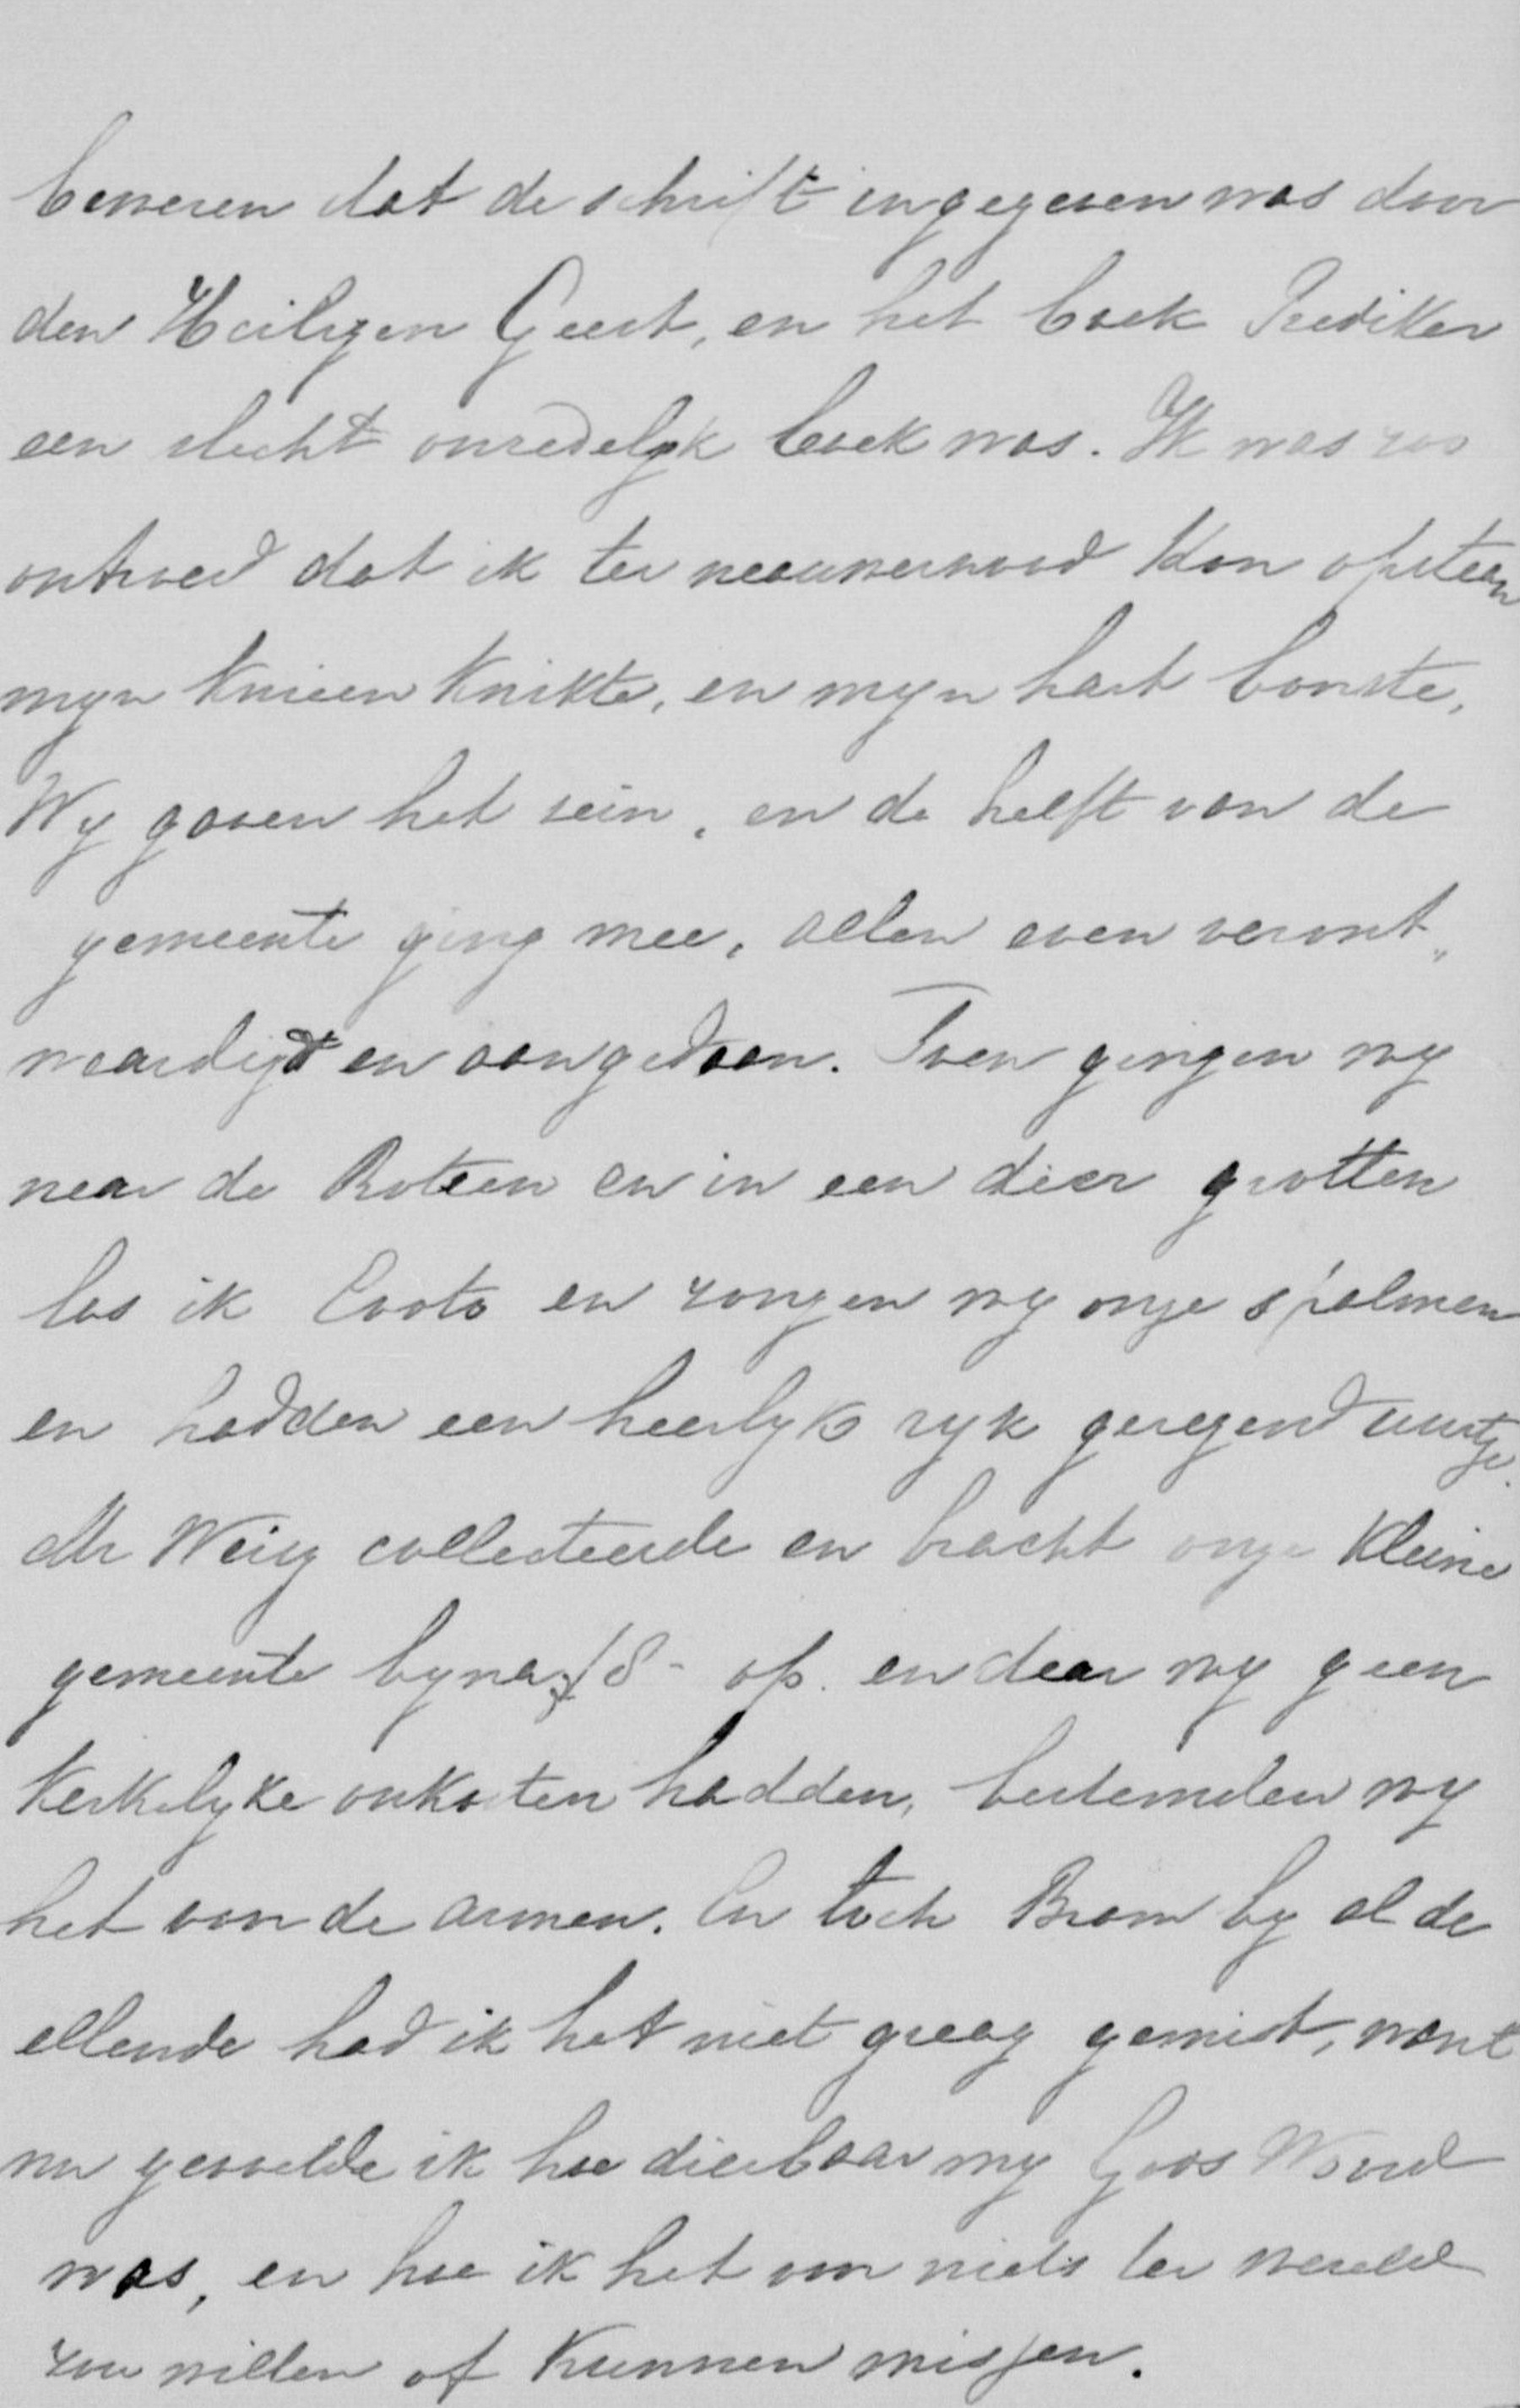 beweren dat de schrift ingegeven was door
den Heiligen Geest, en het boek Prediker
een slecht onzedelyk boek was. Ik was zoo
ontroerd dat ik ter nauwernood kon opstaan
myn knieen knikte, en myn hart bonste,
Wy gaven het sein, en de helft van de
gemeente ging mee, allen even veront„
waardigd en aangedaan. Toen gingen wy
naar de Rotsen en in een dier grotten
las ik Coots en zongen wy onze psalmen
en hadden een heerlyk ryk gezegend uurtje.
Mr Weisz collecteerde en bracht onze kleine
gemeente byna ƒ8- op. en daar wy geen
kerkelyke onkosten hadden, bestemden wy
het voor de armen. En toch Bram by al de
ellende had ik het niet graag gemist, want
nu gevoelde ik hoe dierbaar my Gods Woord
was, en hoe ik het om niets ter wereld
zou willen of kunnen missen.